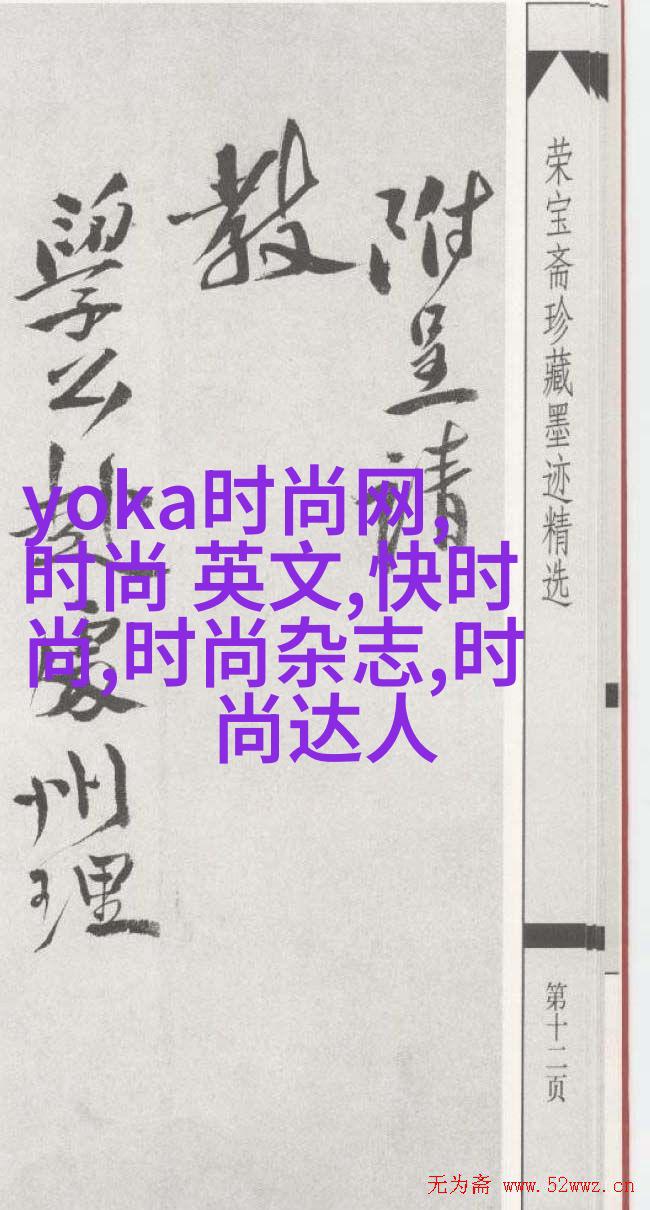 附呈請
教
學公赴處州理
荣宝斋珍藏墨迹精选
第十二页
yoka时尚网,
时尚 英文,快时
尚,时尚杂志,时
尚达人
无为斋 www.52wwz.cn